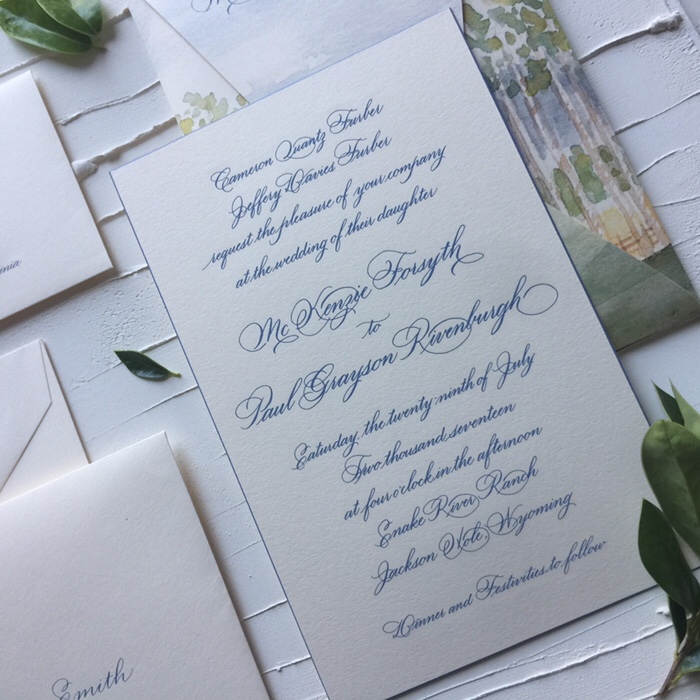 Cameron Quantz Furber
Jeffery Davies Furber
request the pleasure of your company
at the wedding of their daughter
McKenzie Forsyth
to
Paul Grayson Rivenburgh
Saturday, the twenty-ninth of July
Two thousand seventeen
at four o'clock in the afternoon
Snake River Ranch
Jackson Hole, Wyoming
Dinner and Festivities to follow
Smith